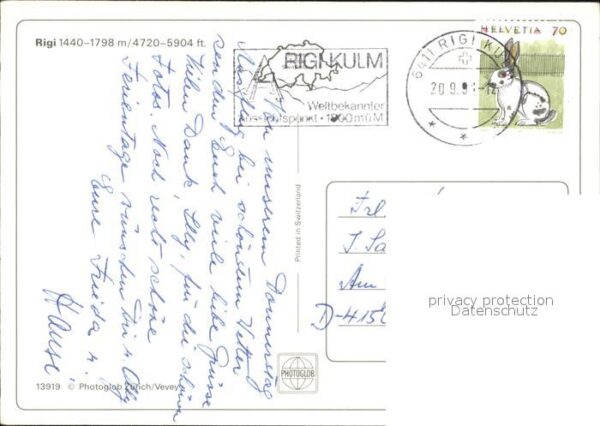 Rigi 1440–1798 m/4720–5904 ft.
RIGI KULM
Weltbekannter
Aussichtspunkt · 1800 m ü M
6411 RIGI KULM
20.9.9
HELVETIA 70
Von unserem Donnerstag
Ausflug bei schönstem Wetter
senden Euch viele liebe Grüsse
Vielen Dank, Elly, für die schönen
Fotos. Noch recht schöne
Ferientage wünschen Dir u. Olly
Eure Frieda u.
Hansi
Printed in Switzerland
Am
D-415
privacy protection
Datenschutz
PHOTOGLOB
13919 © Photoglob Zürich/Vevey